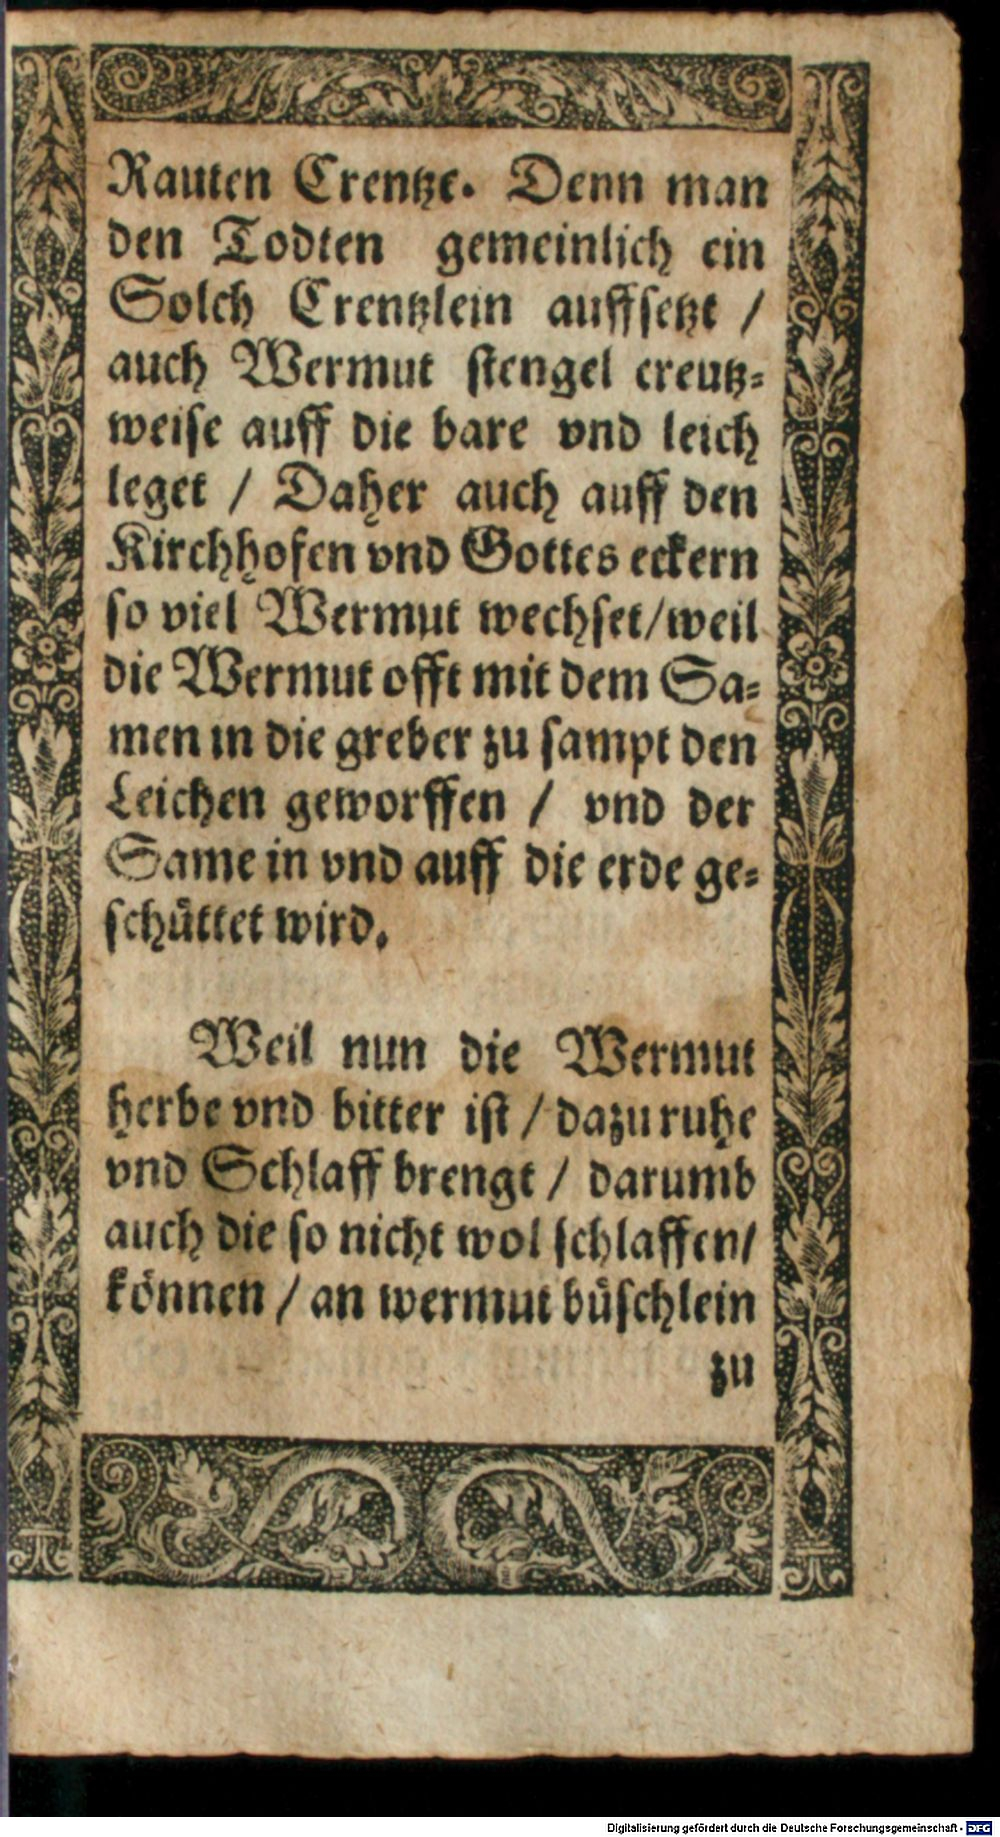 Rauten Crentze. Denn man
den Todten gemeinlich ein
Solch Crentzlein auffsetzt /
auch Wermut stengel creutz-
weise auff die bare vnd leich
leget / Daher auch auff den
Kirchhofen vnd Gottes eckern
so viel Wermut wechset/weil
die Wermut offt mit dem Sa-
men in die greber zu sampt den
Leichen geworffen / vnd der
Same in vnd auff die erde ge-
schüttet wird.
Weil nun die Wermut
herbe vnd bitter ist / dazu ruhe
vnd Schlaff brengt / darumb
auch die so nicht wol schlaffen/
können / an wermut büschlein
zu
Digitalisierung gefördert durch die Deutsche Forschungsgemeinschaft - DFG